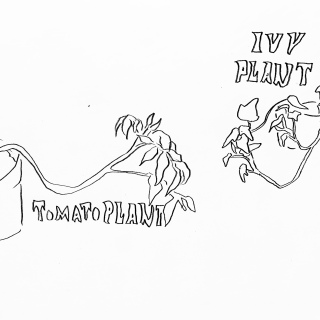 IVY
PLANT
TOMATO PLANT